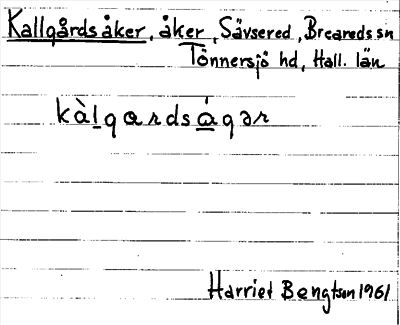 Kallgårdsåker, åker, Sävsered, Breareds sn
Tönnersjö hd, Hall. län
kàlgardságər
Harriet Bengtson 1961